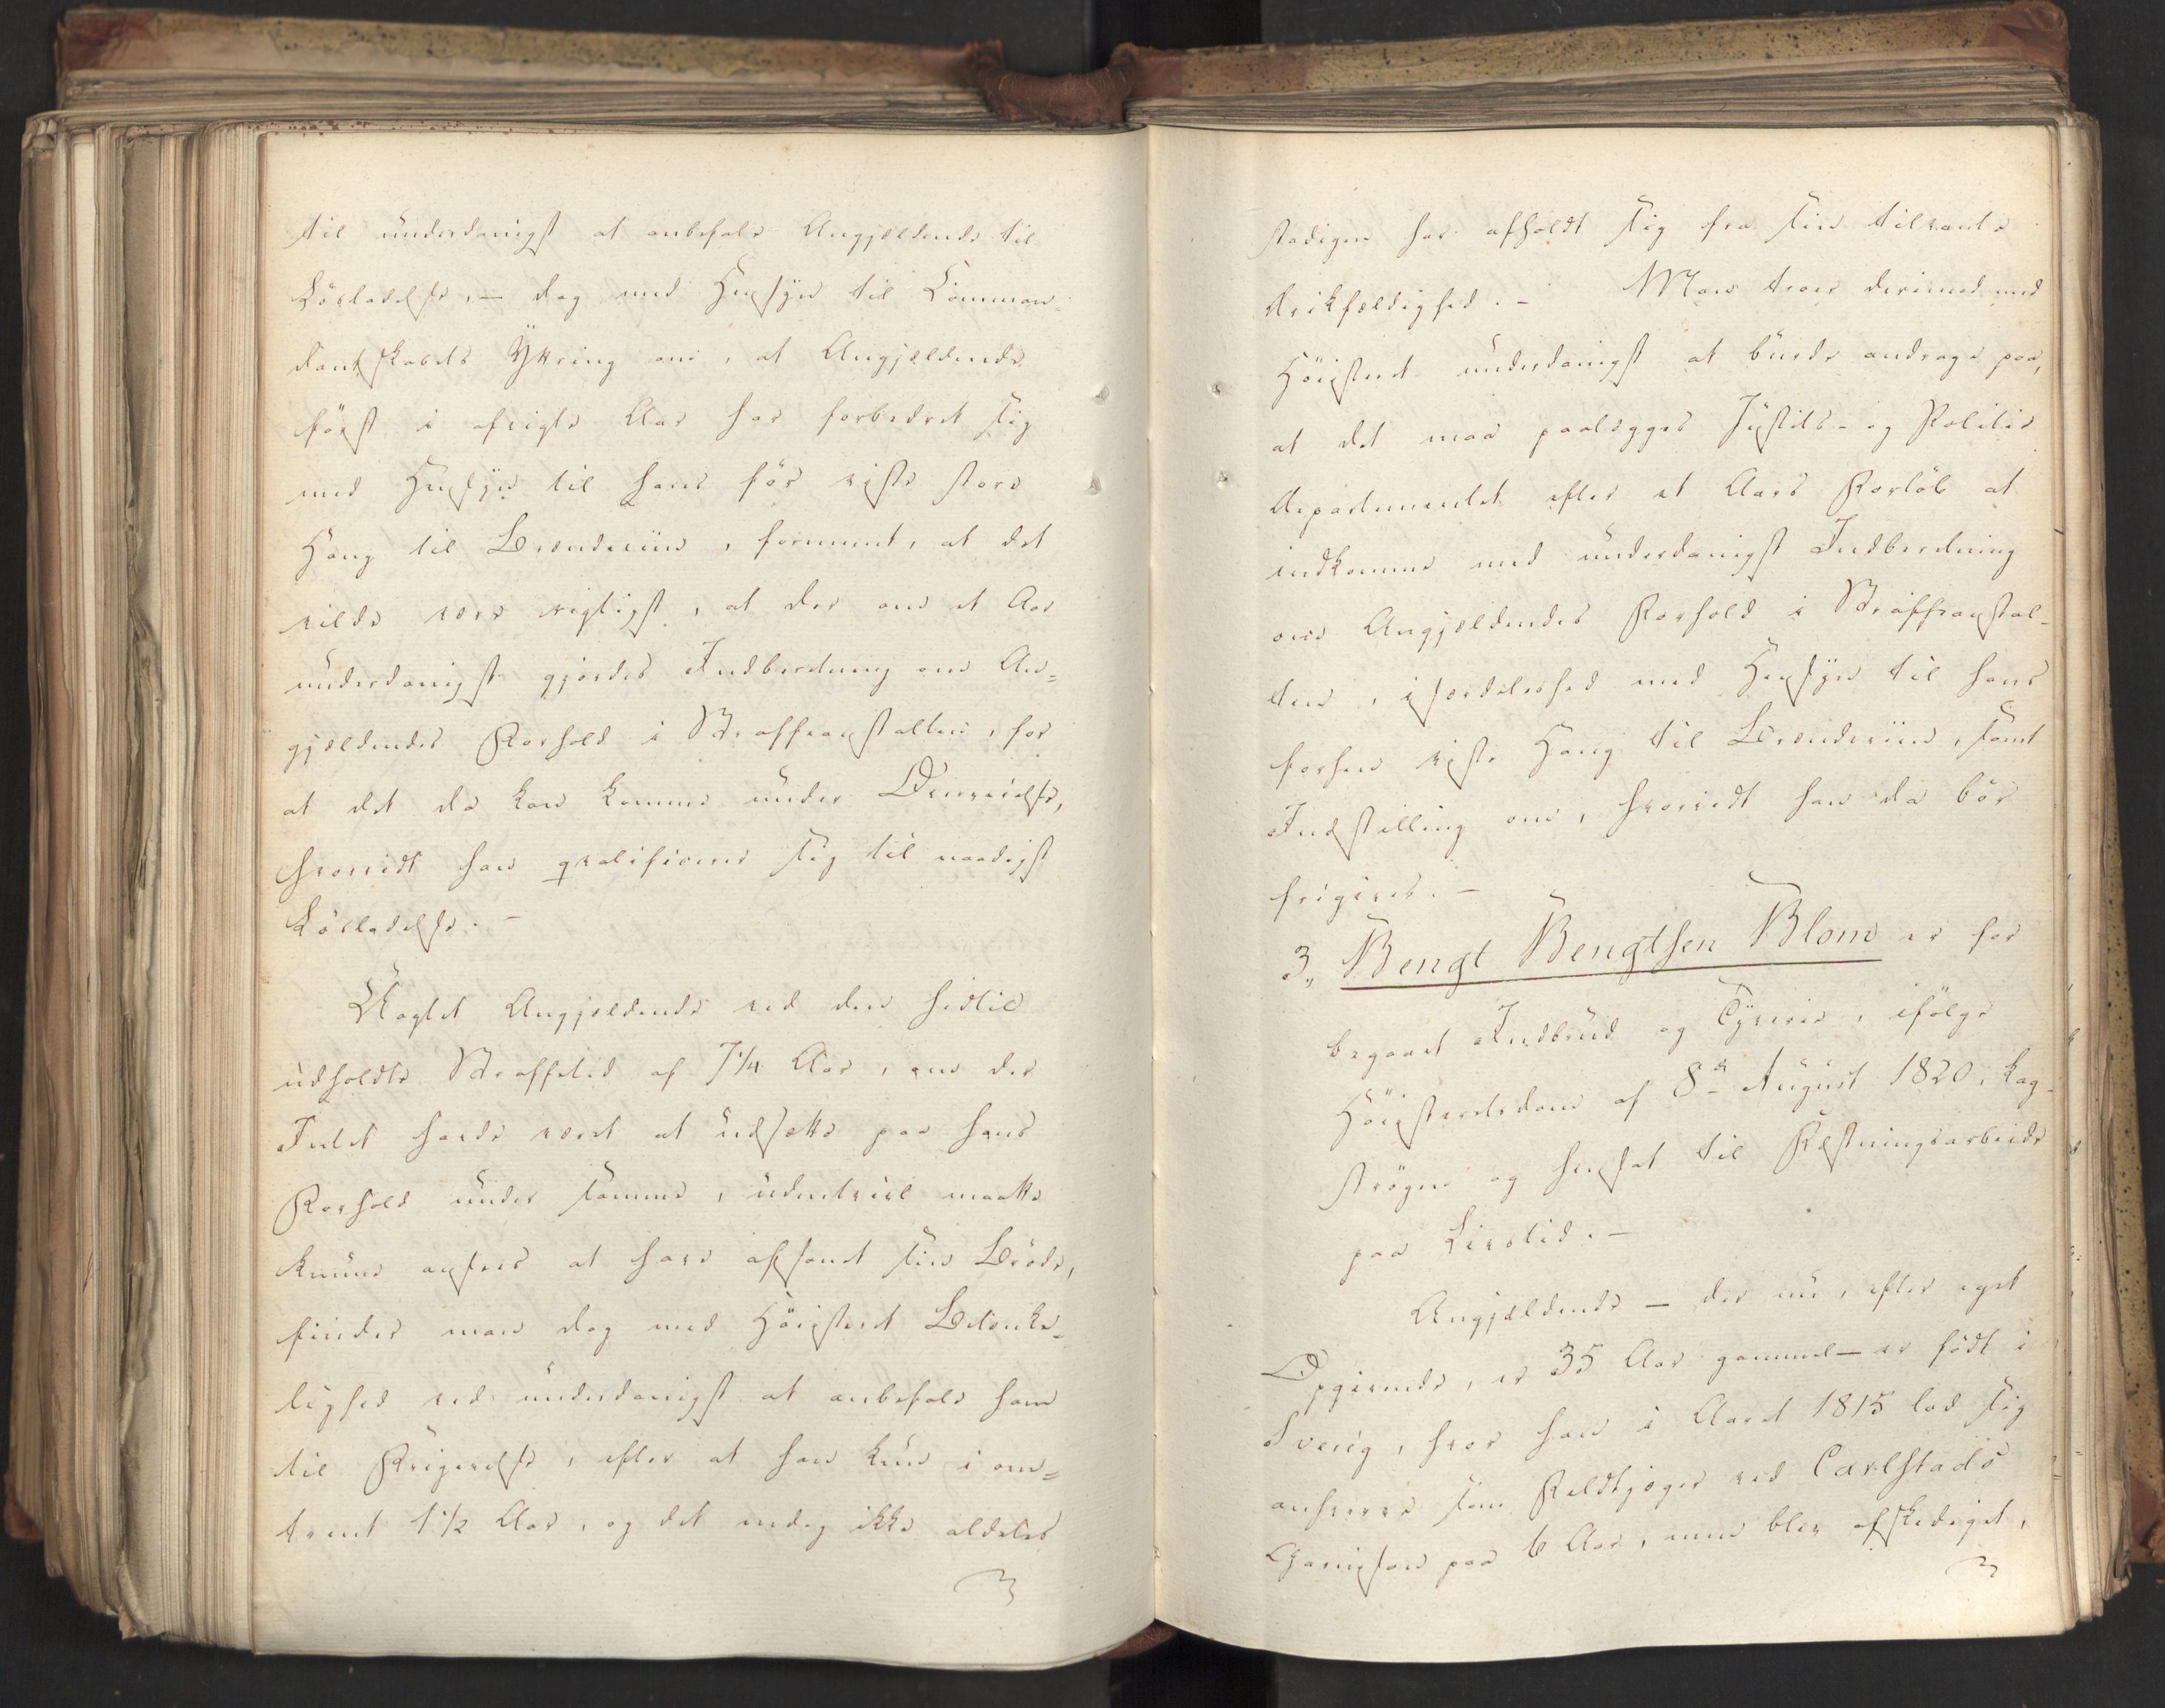 til underdanigst at anbefale Angjældende til
Lösladelse, – dog med Hensyn til Comman-
dantskabets Yttring om, at Angjældende
först i afvigte Aar har forbedret sig
med Hensyn til hans för viste store
Hang til Brændeviin, formeent, at det
vilde være rigtigst, at der om et Aar
underdanigst gjordes Indberetning om An=
gjældendes Forhold i Straffeanstalten, for
at det da kan komme under Overveielse,
hvorvidt han qvalificerer sig til naadigst
Lösladelse. –
Uagtet Angjældende ved den hidtil
udholdte Straffetid af 7 1/4 Aar, om der
Intet havde været at udsætte paa hans
Forhold under samme, udentvivl maatte
kunne ansees at have afsonet sin Bröde,
finder man dog med Höisteret Betænke-
lighed ved underdanigst at anbefale ham
til Frigivelse, efter at han kun i om=
trent 1 1/2 Aar, og det endog ikke aldeles
stadigen har afholdt sig fra sin tilvante
Drikfældighed. – Man troer derimod med
Höisteret underdanigst at burde andrage paa,
at det maa paalægges Justits- og Politie
Departementet efter et Aars Forlöb at
indkomme med underdanigst Indberetning
om Angjældendes Forhold i Straffeanstal-
ten, isærdeleshed med Hensyn til hans
forhen viste Hang til Brændeviin, samt
Indstilling om, hvorvidt han da bör
frigives. –
3, Bengt Bengtsen Blom er for
begaaet Indbrud og Tyverie, ifölge
Höiesteretsdom af 8de August 1820, kag-
strögen og hensat til Fæstningsarbeide
paa Livstid. –
Angjældende – der nu, efter eget
Opgivende, er 35 Aar gammel – er födt i
Sverig, hvor han i Aaret 1815 lod sig
anhverve som Feldtjæger ved Carlstads
Garnison paa 6 Aar, men blev afskediget,